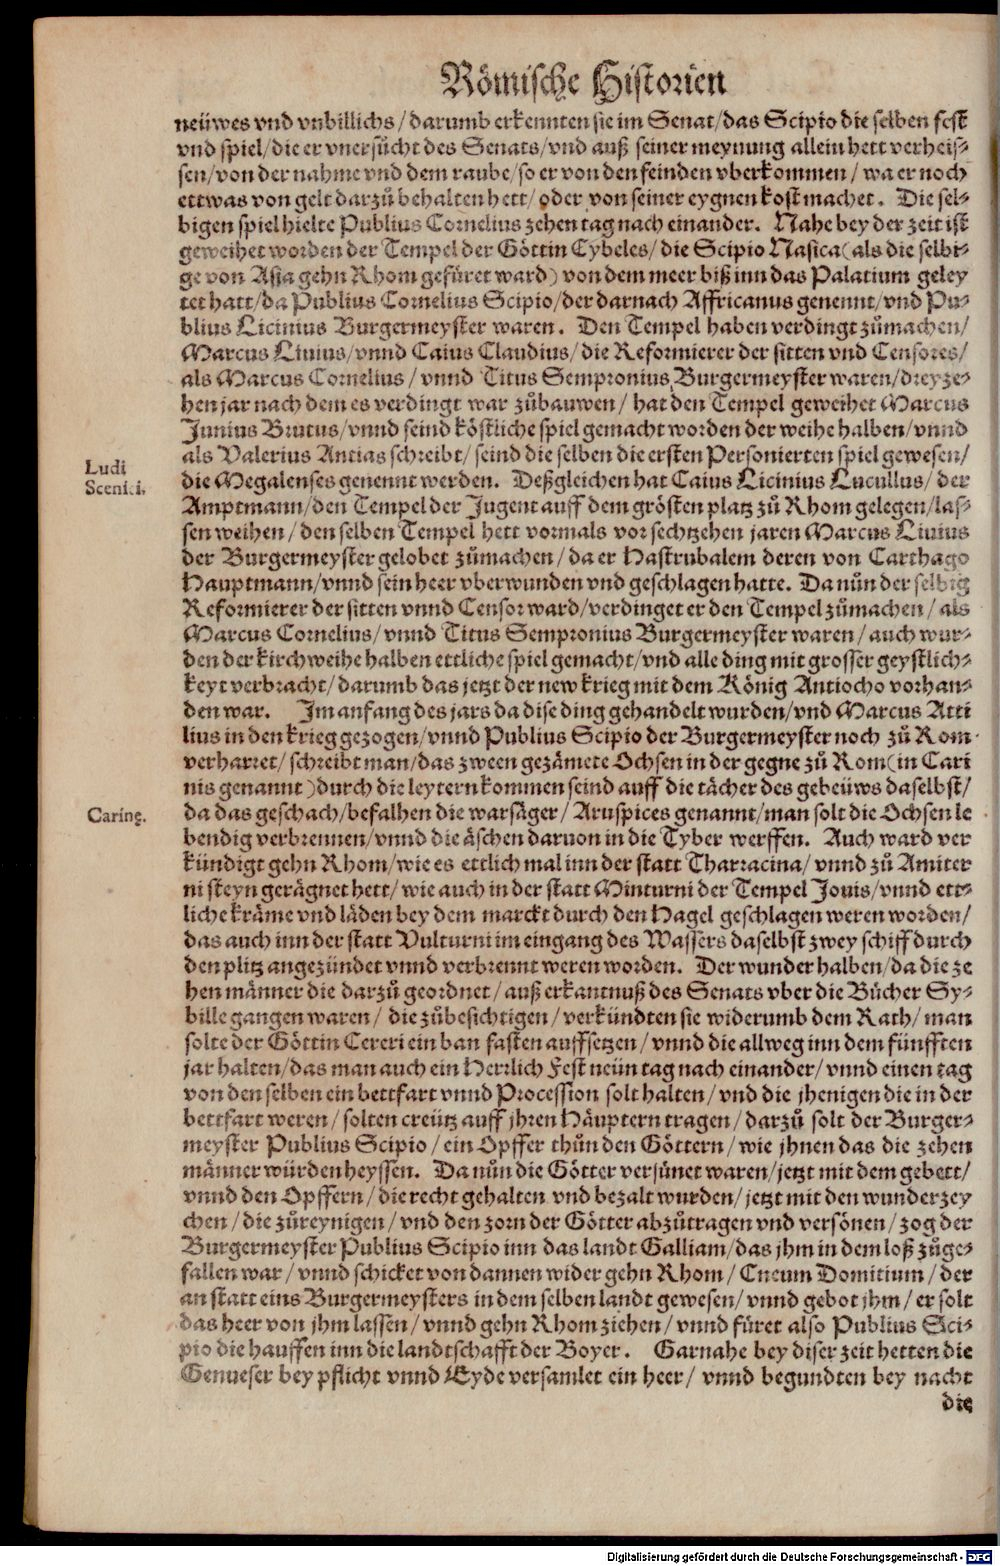 Römische Historien
neüwes vnd vnbillichs/darumb erkennten sie im Senat/das Scipio die selben fest
vnd spiel/die er vnersücht des Senats/vnd auß seiner meynung allein hett verheis⸗
sen/von der nahme vnd dem raube/so er von den feinden vberkommen/wa er noch
ettwas von gelt darzů behalten hett/oder von seiner eygnen kost machet. Die sel⸗
bigen spiel hielte Publius Cornelius zehen tag nach einander. Nahe bey der zeit ist
geweihet worden der Tempel der Göttin Cybeles/die Scipio Nasica(als die selbi⸗
ge von Asia gehn Rhom gefüret ward) von dem meer biß inn das Palatium geley
tet hatt/da Publius Cornelius Scipio/der darnach Affricanus genennt/vnd Pu⸗
blius Licinius Burgermeyster waren. Den Tempel haben verdingt zůmachen/
Marcus Liuius/vnnd Caius Claudius/die Reformierer der sitten vnd Censores/
als Marcus Cornelius/vnnd Titus Sempronius Burgermeyster waren/dreyze⸗
hen jar nach dem es verdingt war zůbauwen/hat den Tempel geweihet Marcus
Junius Brutus/vnnd seind köstliche spiel gemacht worden der weihe halben/vnnd
als Valerius Antias schreibt/seind die selben die ersten Personierten spiel gewesen/
Ludi
Scenici.
die Megalenses genennt werden. Deßgleichen hat Caius Licinius Lucullus/der
Amptmann/den Tempel der Jugent auff dem grösten platz zů Rhom gelegen/las⸗
sen weihen/den selben Tempel hett vormals vor sechtzehen jaren Marcus Liuius
der Burgermeyster gelobet zůmachen/da er Hastrubalem deren von Carthago
Hauptmann/vnnd sein heer vberwunden vnd geschlagen hatte. Da nůn der selbig
Reformierer der sitten vnnd Censor ward/verdinget er den Tempel zůmachen/als
Marcus Cornelius/vnnd Titus Sempronius Burgermeyster waren/auch wur⸗
den der kirchweihe halben ettliche spiel gemacht/vnd alle ding mit grosser geystlich⸗
keyt verbracht/darumb das jetzt der new krieg mit dem König Antiocho vorhan⸗
den war. Im anfang des jars da dise ding gehandelt wurden/vnd Marcus Atti
lius in den krieg gezogen/vnnd Publius Scipio der Burgermeyster noch zů Rom
verharret/schreibt man/das zween gezämete Ochsen in der gegne zů Rom(in Cari
nis genannt)durch die leytern kommen seind auff die tächer des gebeüws daselbst/
Carinę.
da das geschach/befalhen die warsäger/Aruspices genannt/man solt die Ochsen le
bendig verbrennen/vnnd die äschen daruon in die Tyber werffen. Auch ward ver
kündigt gehn Rhom/wie es ettlich mal inn der statt Tharracina/vnnd zů Amiter
ni steyn gerägnet hett/wie auch in der statt Minturni der Tempel Jouis/vnnd ett⸗
liche kräme vnd läden bey dem marckt durch den Hagel geschlagen weren worden/
das auch inn der statt Vulturni im eingang des Wassers daselbst zwey schiff durch
den plitz angezündet vnnd verbrennt weren worden. Der wunder halben/da die ze
hen männer die darzů geordnet/auß erkantnuß des Senats vber die Bücher Sy⸗
bille gangen waren/die zůbesichtigen/verkündten sie widerumb dem Rath/man
solte der Göttin Cereri ein ban fasten auffsetzen/vnnd die allweg inn dem fünfften
jar halten/das man auch ein Herrlich Fest neün tag nach einander/vnnd einen tag
von den selben ein bettfart vnnd Procession solt halten/vnd die jhenigen die in der
bettfart weren/solten creütz auff jhren Häuptern tragen/darzů solt der Burger⸗
meyster Publius Scipio/ein Opffer thůn den Göttern/wie jhnen das die zehen
männer würden heyssen. Da nůn die Götter versünet waren/jetzt mit dem gebett/
vnnd den Opffern/die recht gehalten vnd bezalt wurden/jetzt mit den wunderzey
chen/die zůreynigen/vnd den zorn der Götter abzůtragen vnd versönen/zog der
Burgermeyster Publius Scipio inn das landt Galliam/das jhm in dem loß zůge⸗
fallen war/vnnd schicket von dannen wider gehn Rhom/Cneum Domitium/der
an statt eins Burgermeysters in dem selben landt gewesen/vnnd gebot jhm/er solt
das heer von jhm lassen/vnnd gehn Rhom ziehen/vnnd füret also Publius Sci⸗
pio die hauffen inn die landtschafft der Boyer. Garnahe bey diser zeit hetten die
Genueser bey pflicht vnnd Eyde versamlet ein heer/vnnd begundten bey nacht
die
Digitalisierung gefördert durch die Deutsche Forschungsgemeinschaft - DFG